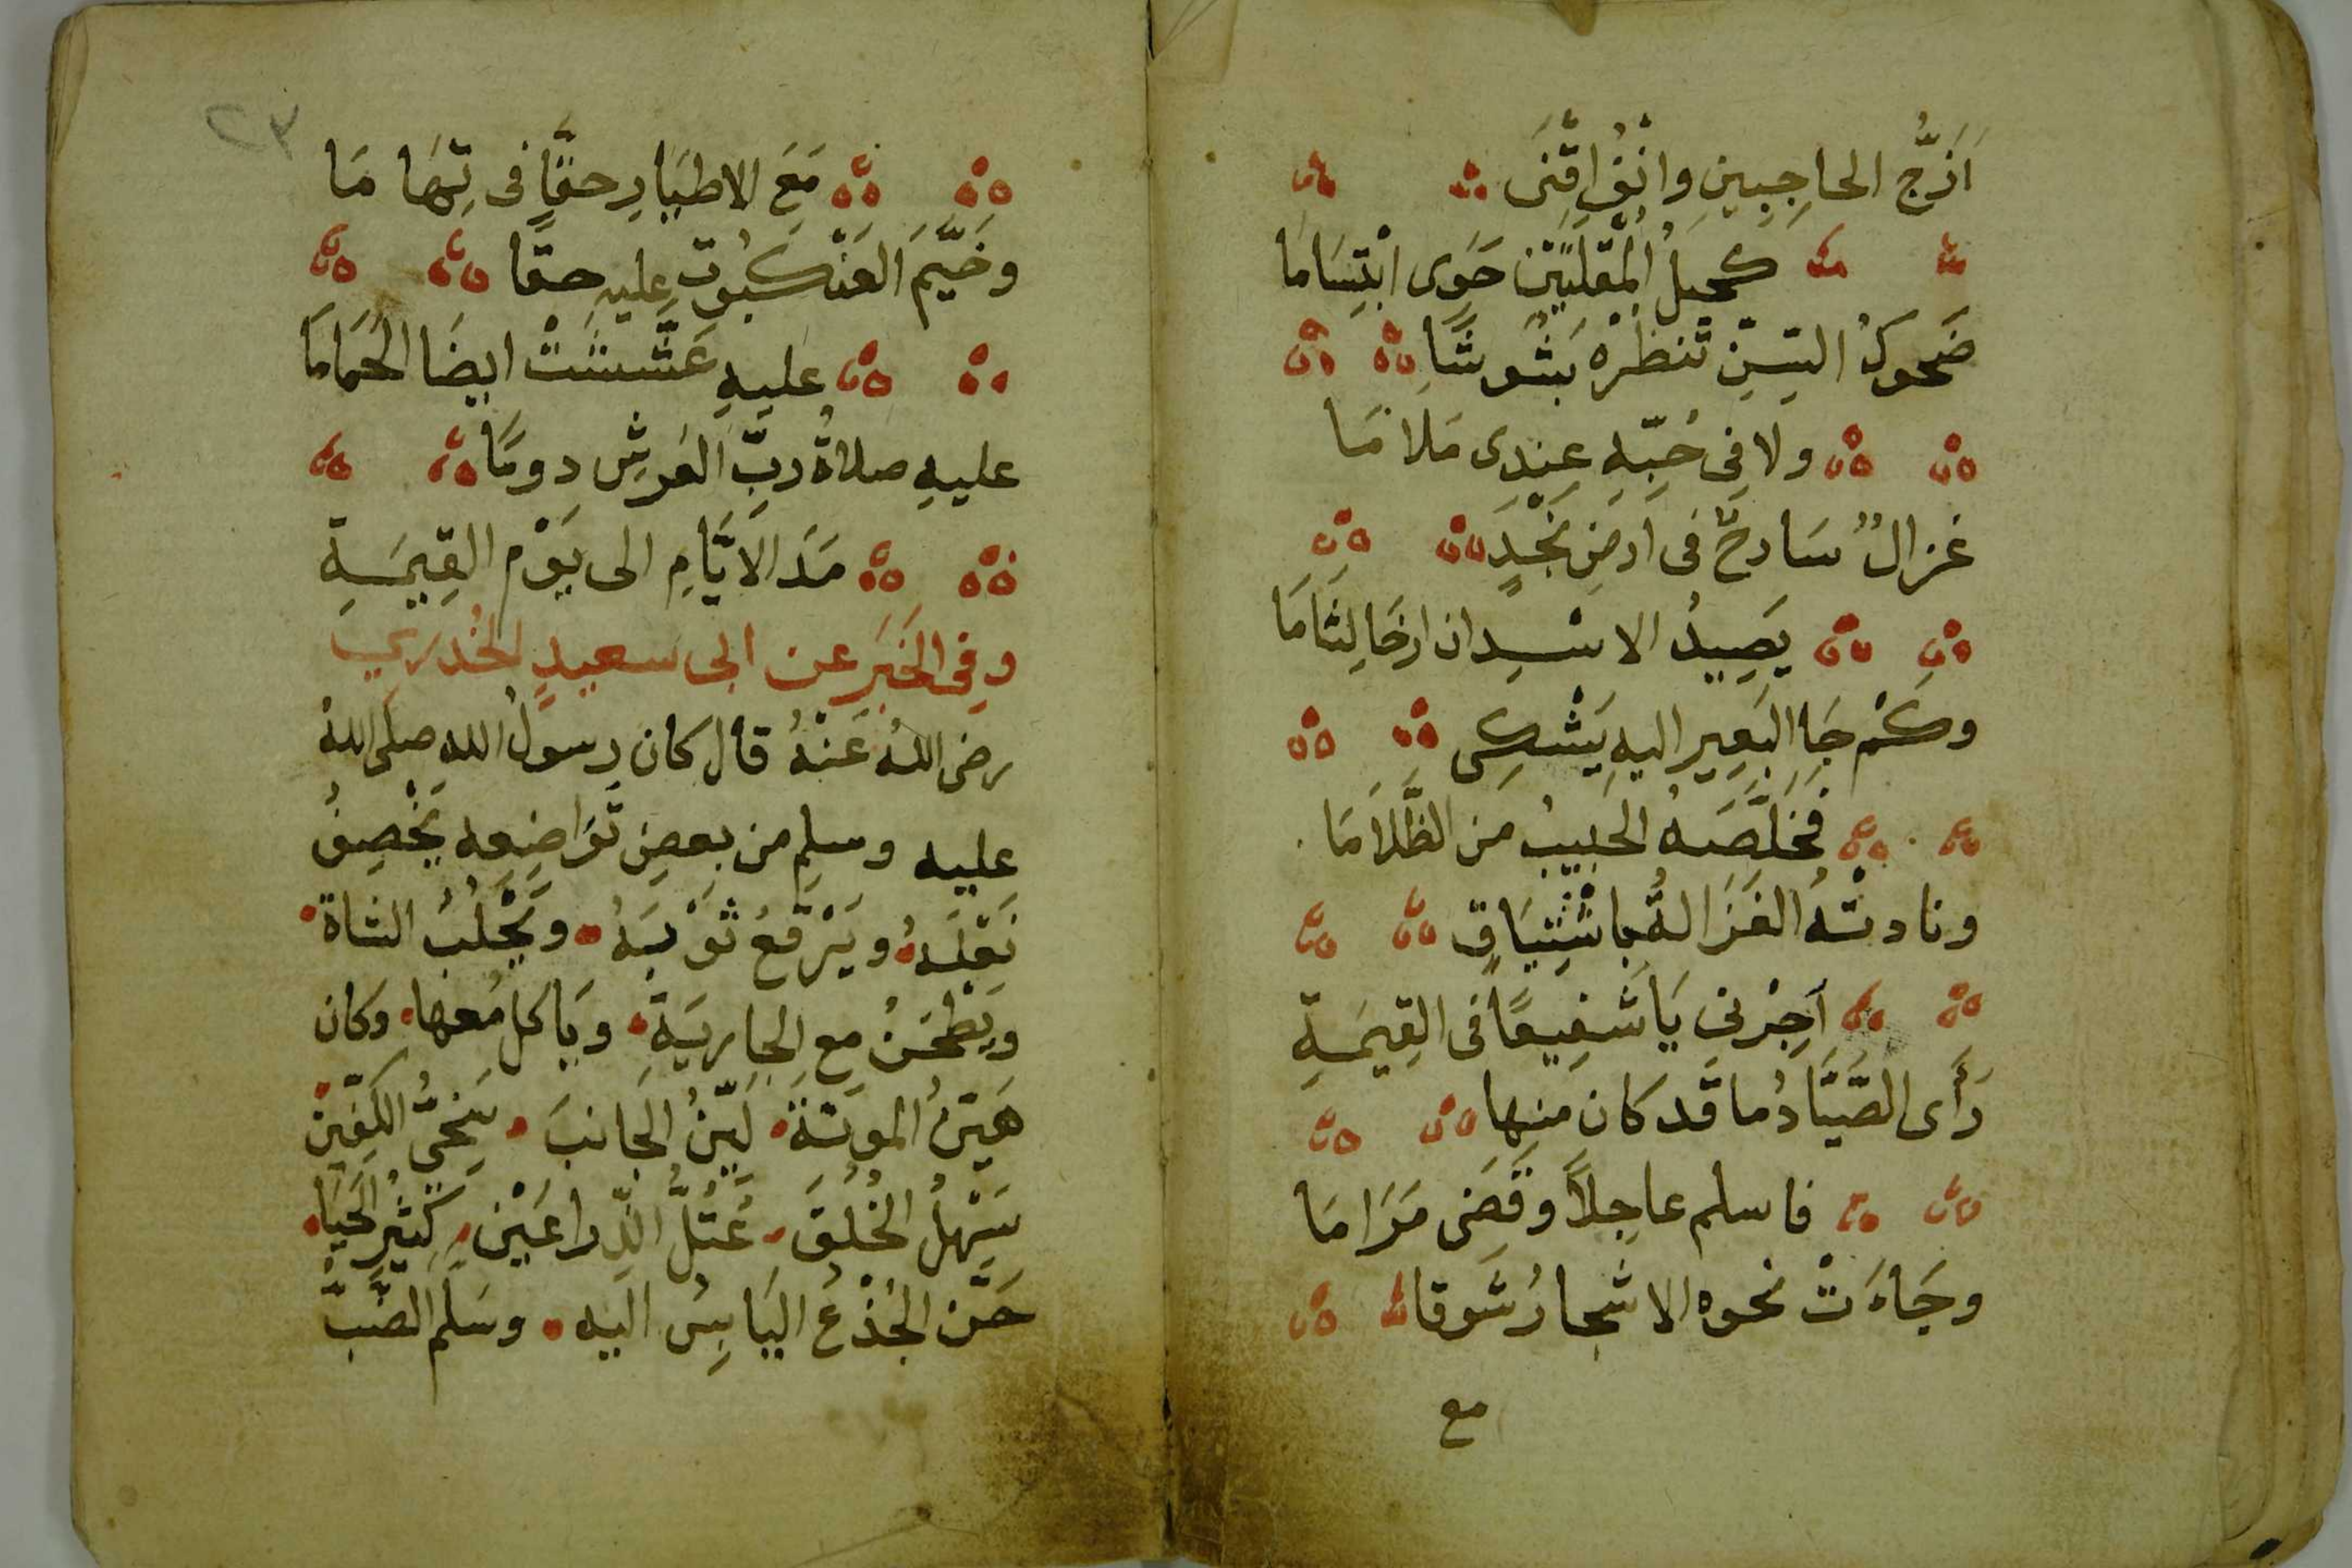 اَزَجُّ الحاجِبِينِ وانْفُ اقْنَى
كحِيلُ المُقْلَتَيْن حَوَى ابْتِسَامَا
ضَحوكُ السِّنِّ تنظُرْهُ بَشُوشًا
ولا فِى حُبِّهِ عِنْدِى مَلامَا
غزالٌ سَارحٌ فى اَرضِ نَجْدٍ
يَصِيدُ الاسْد ان ارخَا لِثَامَا
وكَمْ جَا البَعِير اليهِ يَشْكِى
فخَلَّصَهُ الحَبِيبُ من الظَّلَامَا
ونادتْهُ الغَزَالةُ باشْتِيَاقٍ
اَجِرْنِى يَا شَفِيعًا فى القِيٰمَةِ
رَأَى الصَّيَّادُ ما قَد كان منها
فاسلم عاجِلاً وقَضَى مَرَامَا
وجَاءَتْ نحوه الاشجارُ شَوقا
مع
٢٣
مَعَ الاطيَارِ حقًّا فى تِهَامَا
وخَيَّمَ العَنْكبُوت عليهِ حقًا
عليهِ عَشَّشَتْ ايضَا الحَمَامَا
عليهِ صلاةُ ربِّ العَرشِ دومًا
مَدَ الاَيَّامِ الى يَوْمِ القِيٰمَةِ
وفِى الخَبَرِ عن ابى سعيدٍ الخُدرِي
رضى اللهُ عَنْهُ قال كان رسولُ اللهِ صلى اللهُ
عليه وسلم من بعضِ تَوَاضِعِهِ يَخْصِفُ
نَعْلَهُ ويَرْقَعُ ثَوْبَهُ ويَحْلُبُ الشاة
ويَطْحَنُ مع الجارِيَةِ وياكل مَعها وكان
هَيِّنُ المونَة لَيِّنُ الجَانبَ سَخِيُّ الكَفَّيْن
سَهْلُ الخُلُقَ عَتَلُّ الذِّراعَيْن كثيرَ الحَيَا
حَنّ الجُذْعُ اليَابِسُ اليه وسَلَّم الضَّبّ